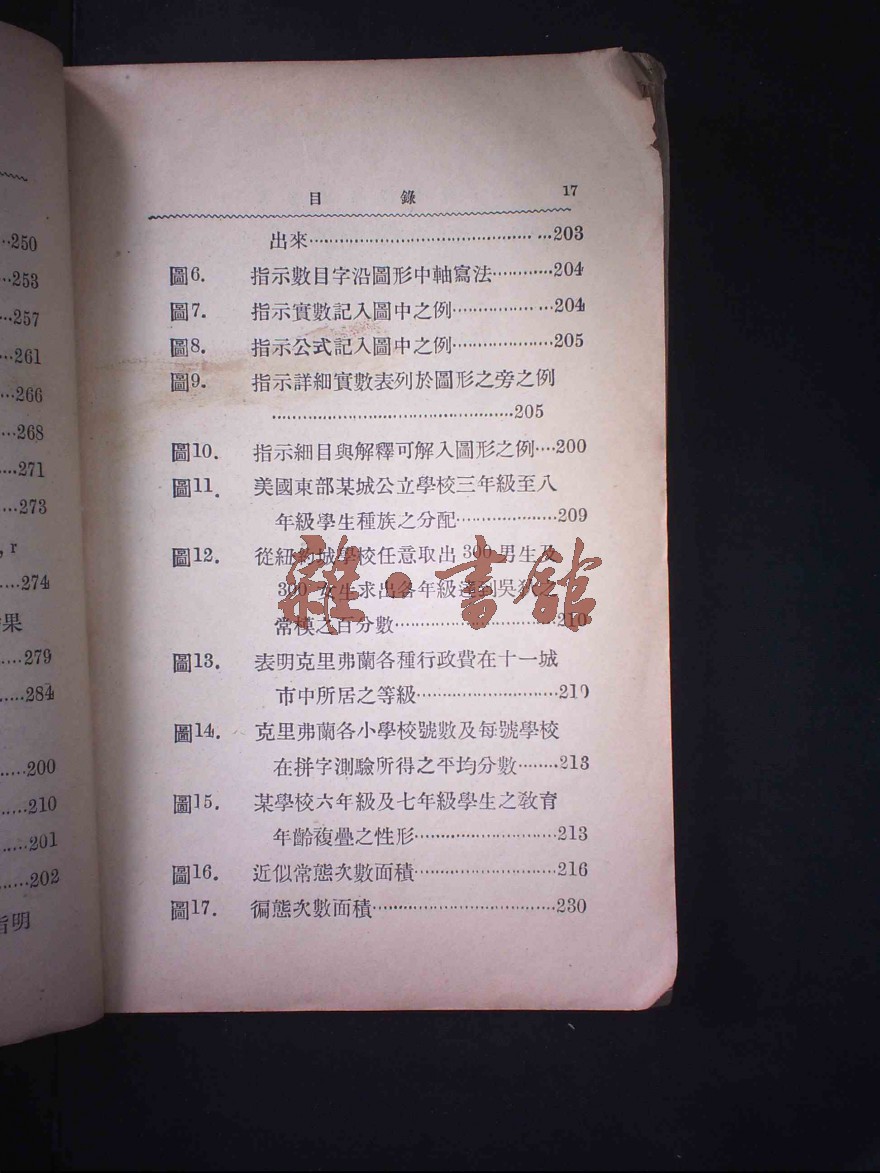 250
253
257
261
266
268
271
273
, r
274
果
279
284
200
210
201
202
指明
目 錄 17
出來……203
圖6. 指示數目字沿圖形中軸寫法……204
圖7. 指示實數記入圖中之例……204
圖8. 指示公式記入圖中之例……205
圖9. 指示詳細實數表列於圖形之旁之例
……205
圖10. 指示細目與解釋可解入圖形之例……200
圖11. 美國東部某城公立學校三年級至八
年級學生種族之分配……209
圖12. 從紐約城學校任意取出300男生及
300女生求出各年級達到吳狄之
常模之百分數……210
圖13. 表明克里弗蘭各種行政費在十一城
市中所居之等級……210
圖14. 克里弗蘭各小學校號數及每號學校
在拼字測驗所得之平均分數……213
圖15. 某學校六年級及七年級學生之教育
年齡複疊之性形……213
圖16. 近似常態次數面積……216
圖17. 徧態次數面積……230
雜·書館